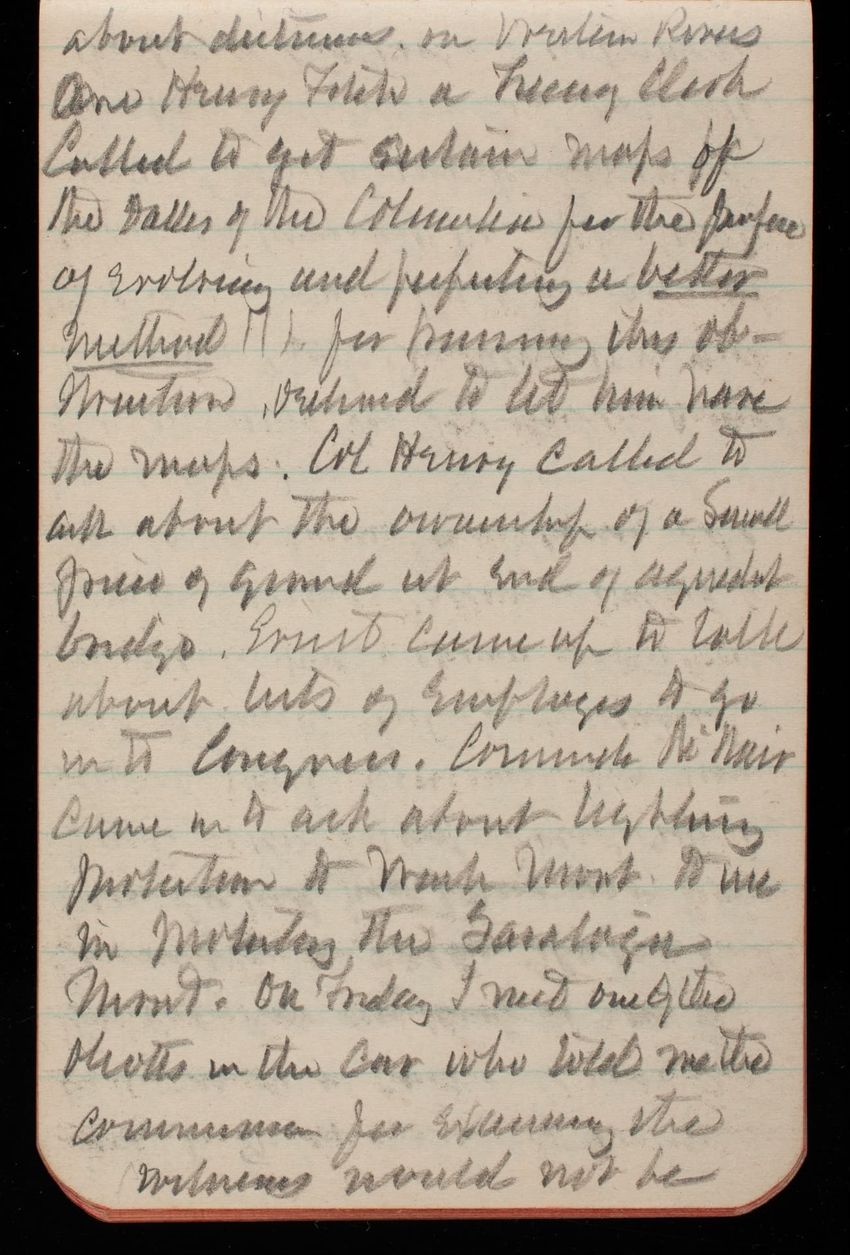 about distances on Western Rivers
One Henry Fitch a Treasy Clerk
Called to get certain maps of
the Dalles of the Columbia for the purpose
of Evolving and perfecting a better
method !!! for passing this ob-
struction, declined to let him have
the maps. Col Henry called to
ask about the ownership of a Small
piece of ground at End of aqueduct
bridge. Ernst came up to talk
about lists of Employes to go
in to Congress. Commodo
came in to ask about lightning
protection to Wash Mont. to use
in protecting the Saratoga
Monut. On Friday I met one of the
in the Car who told me the
commission for Examining the
witnesses would not be